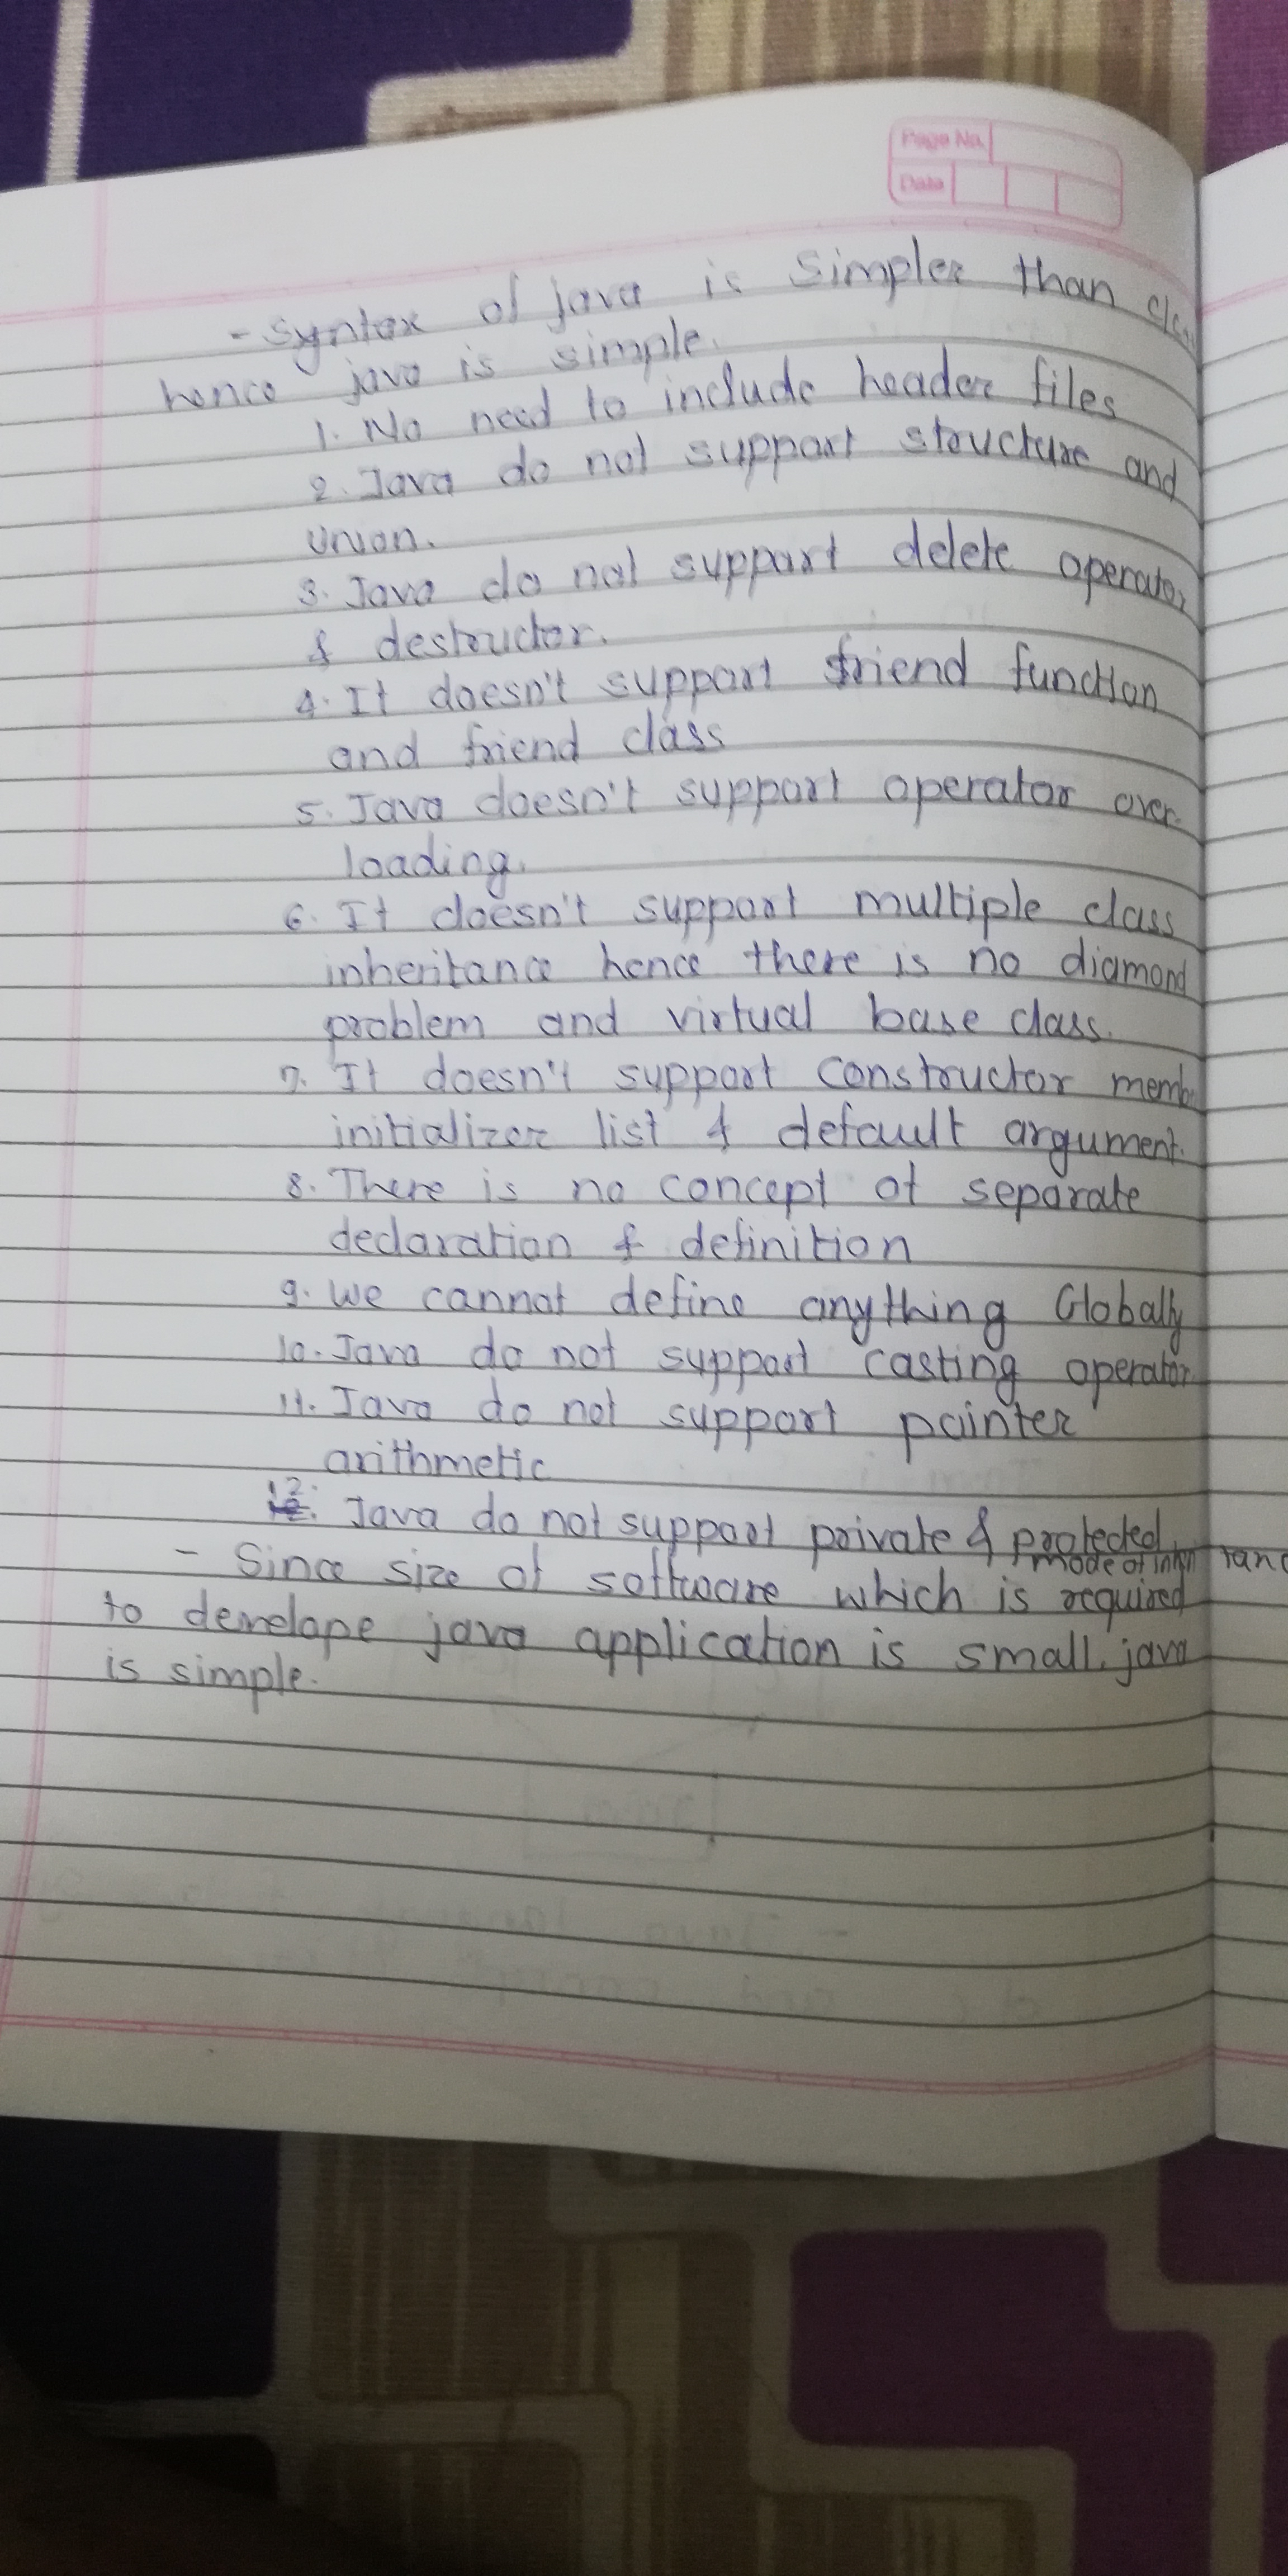 Page No.
Date
- Syntax of java is simpler than
hence java is simple.
1. No need to include header files
2. Java do not support structure and
union.
3. Java do not support delete operator
& destructor.
4. It doesn't support friend function
and friend class
5. Java doesn't support operator over-
loading.
6. It doesn't support multiple class
inheritance hence there is no diamond
problem and virtual base class.
7. It doesn't support constructor memb
initializer list & default argument.
8. There is no concept of separate
declaration & definition
9. We cannot define anything Globally
10. Java do not support casting operator
11. Java do not support pointer
arithmetic
12. Java do not support private & protected
mode of
- Since size of software which is required
to develope java application is small. java
is simple.